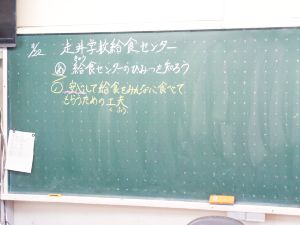 走井学校給食センター
め 給食センターのひみつを知ろう
安心して給食をみんなに食べて
もらうための工夫
くふう